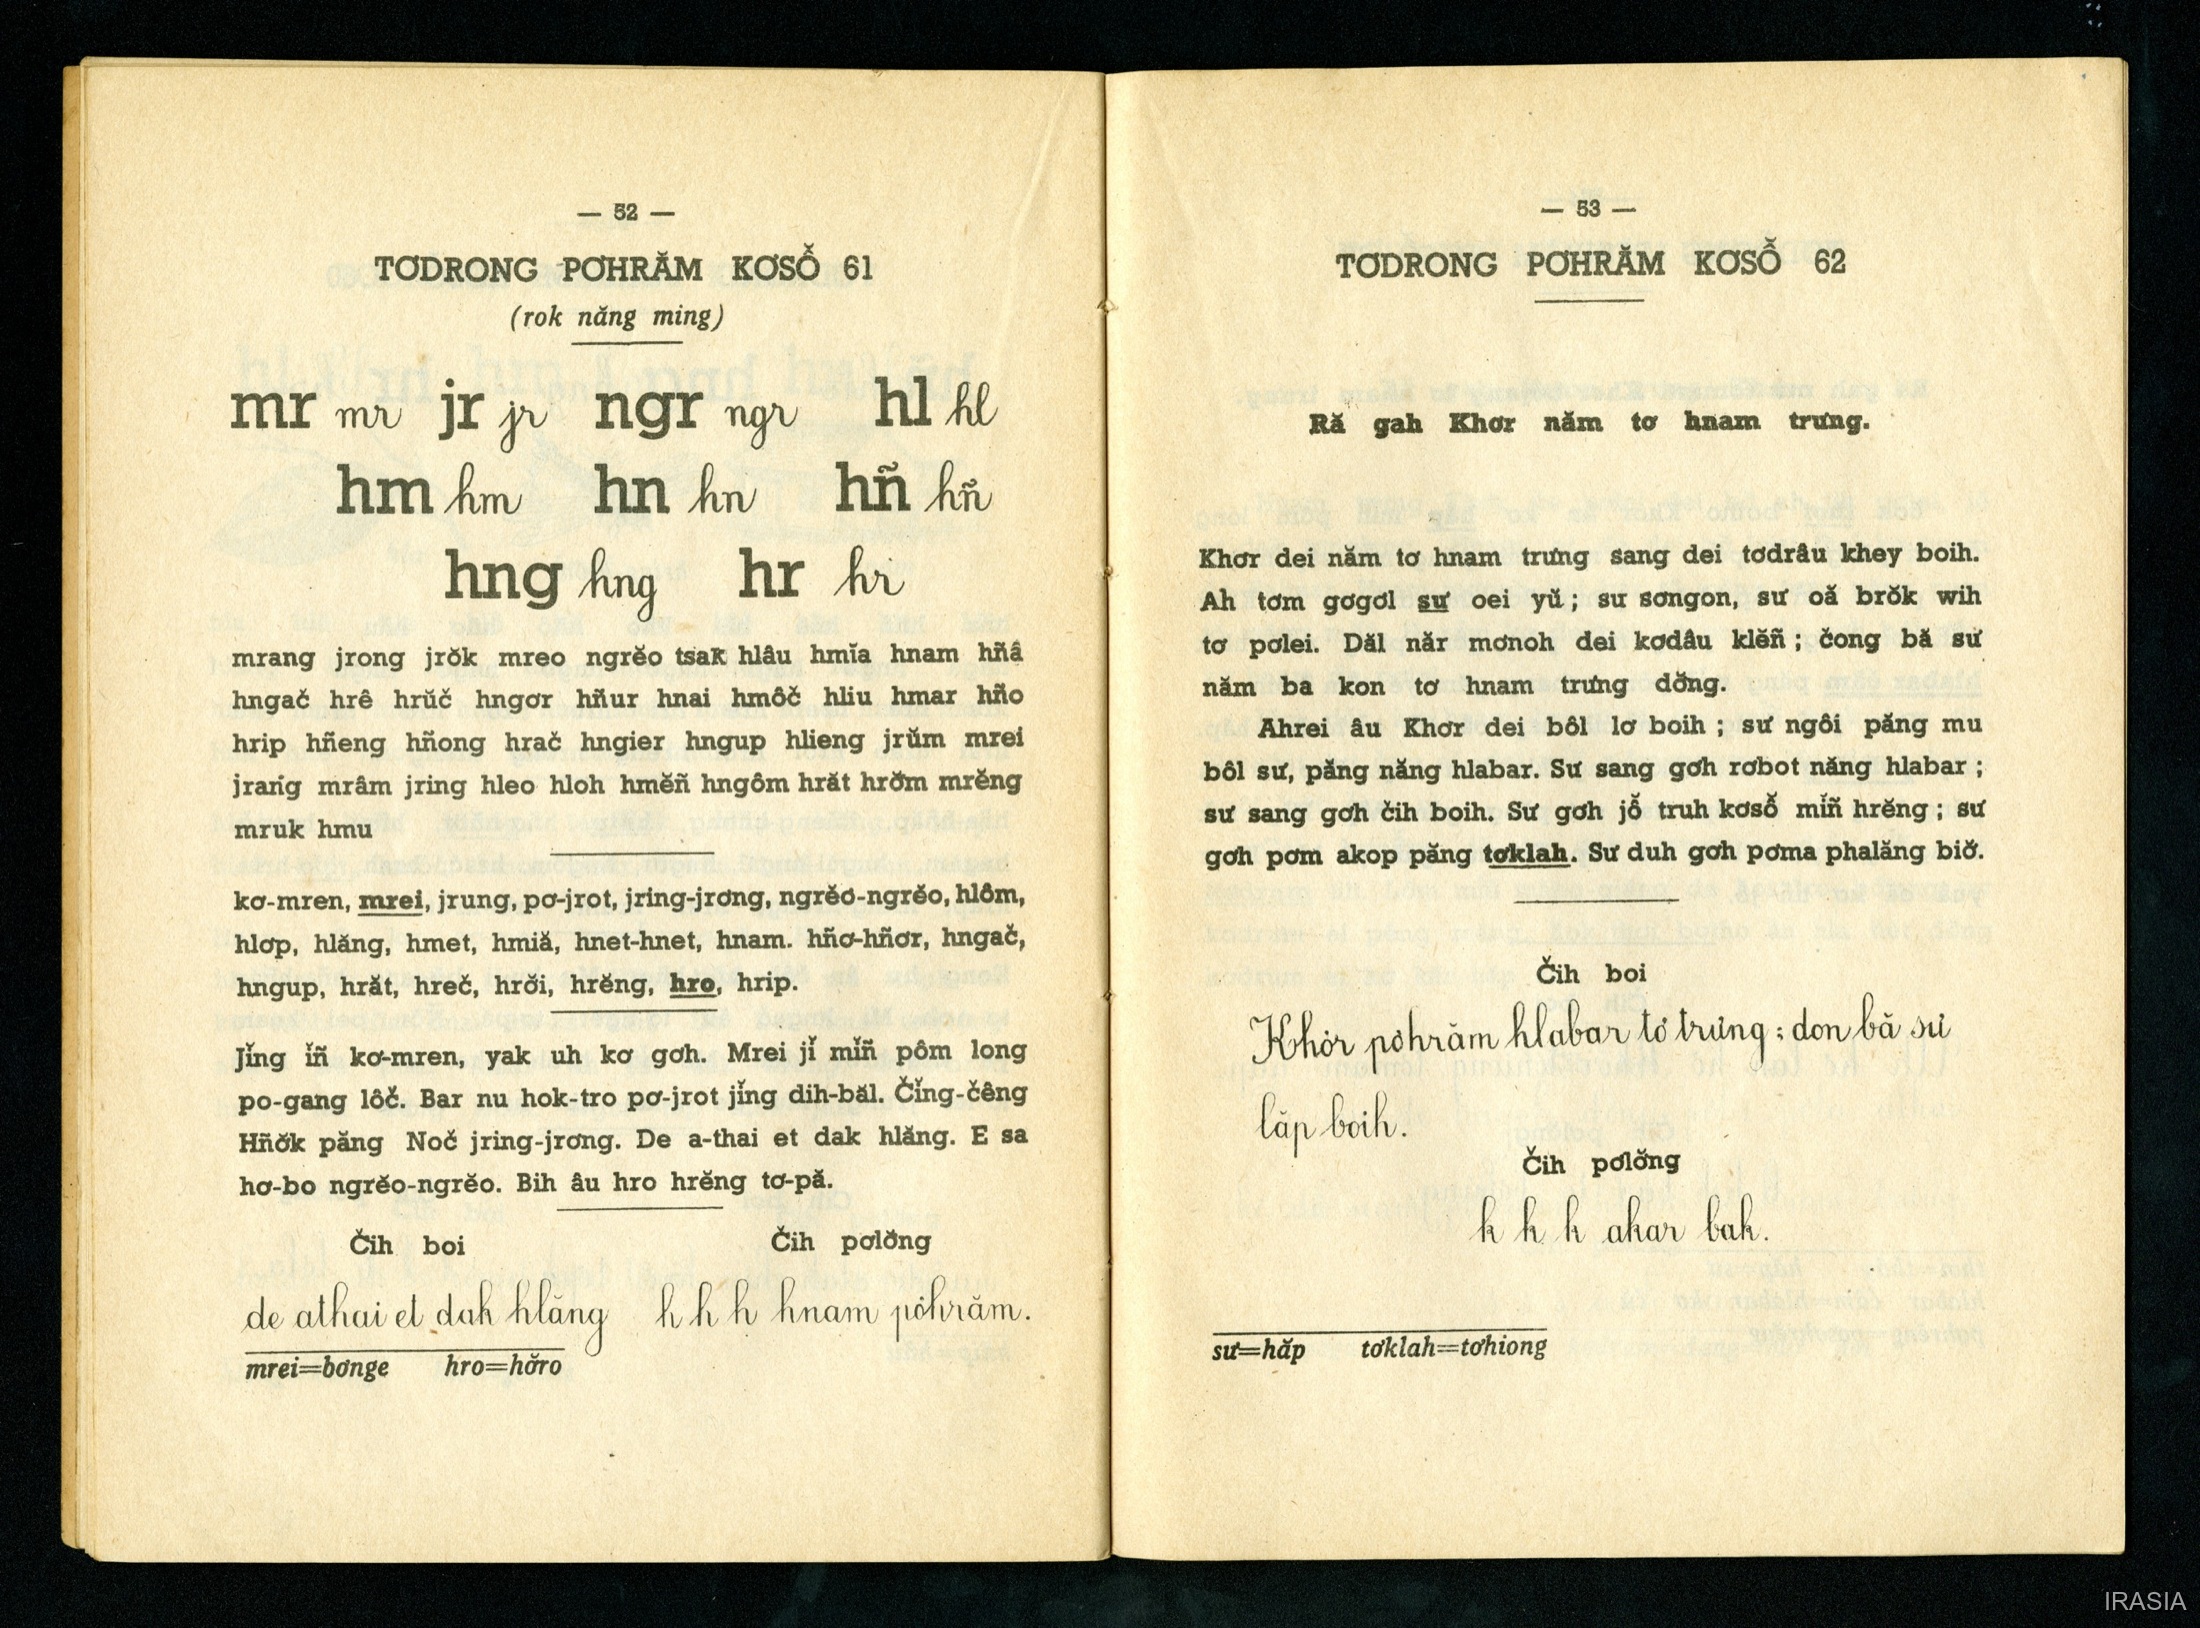 — 52 —
TƠDRONG PƠHRĂM KƠSỖ 61
(rok năng ming)
mr mr jr jr ngr ngr hl hl
hm hm hn hn hñ hñ
hng hng hr hr
mrang jrong jrŏk mreo ngrĕo tsak hlâu hmĭa hnam hñâ
hngač hrê hrŭč hngơr hñur hnai hmôč hliu hmar hño
hrip hñeng hñong hrač hngier hngup hlieng jrŭm mrei
jrang mrâm jring hleo hloh hmĕñ hngôm hrăt hrơ̆m mrĕng
mruk hmu
kơ-mren, mrei, jrung, pơ-jrot, jring-jrơng, ngrĕo-ngrĕo, hlôm,
hlơp, hlăng, hmet, hmiă, hnet-hnet, hnam. hñơ-hñơr, hngač,
hngup, hrăt, hreč, hrơ̆i, hrĕng, hro, hrip.
Jĭng ĭñ kơ-mren, yak uh kơ gơh. Mrei jĭ mĭñ pôm long
po-gang lôč. Bar nu hok-tro pơ-jrot jĭng dih-băl. Čĭng-čêng
Hñơ̆k păng Noč jring-jrơng. De a-thai et dak hlăng. E sa
hơ-bo ngrĕo-ngrĕo. Bih âu hro hrĕng tơ-pă.
Čih boi Čih pơlơ̆ng
de athai et dak hlăng h h h hnam pơhrăm.
mrei=bơnge hro=hơ̆ro
— 53 —
TƠDRONG PƠHRĂM KƠSỖ 62
Ră gah Khơr năm tơ hnam trưng.
Khơr dei năm tơ hnam trưng sang dei tơdrâu khey boih.
Ah tơm gơgơl sư oei yŭ; sư sơngon, sư oă brŏk wih
tơ pơlei. Dăl năr mơnoh dei kơdâu klĕñ; čong bă sư
năm ba kon tơ hnam trưng dơ̆ng.
Ahrei âu Khơr dei bôl lơ boih; sư ngôi păng mu
bôl sư, păng năng hlabar. Sư sang gơh rơbot năng hlabar;
sư sang gơh čih boih. Sư gơh jô̆ truh kơsô̆ mĭñ hrĕng; sư
gơh pơm akop păng tơklah. Sư duh gơh pơma phalăng biơ̆.
Čih boi
Khơr pơhrăm hlabar tơ trưng; don bă sư
lăp boih.
Čih pơlơ̆ng
k k k akar bak.
sư=hăp tơklah=tơhiong
IRASIA